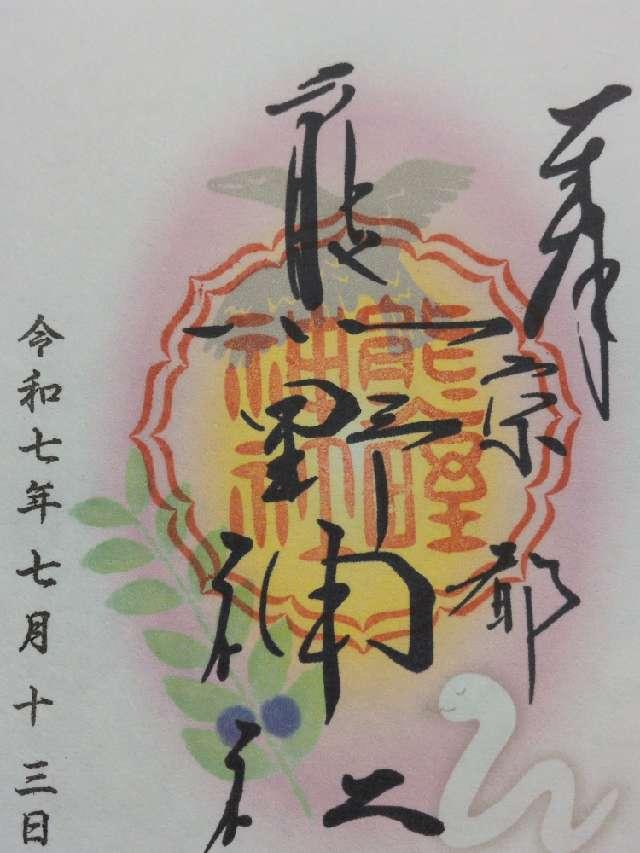 奉拝
京都
熊野神社
令和七年七月十三日